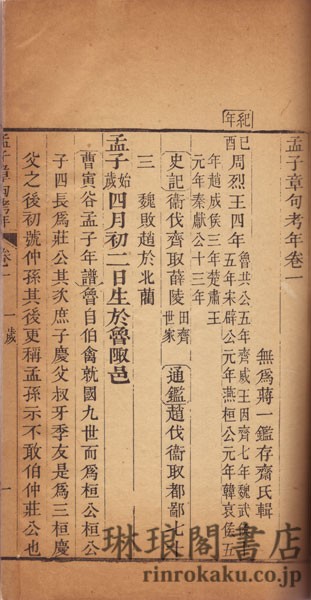 孟子章句考年卷一
無為蔣一鑑存齋氏輯
紀年
己酉
周烈王四年魯共公五年齊威王因齊七年魏武侯
五年宋辟公元年燕桓公元年韓哀侯五
年趙成侯三年楚肅王
元年秦獻公十三年
史記衛伐齊取薛陵田齊世家
通鑑趙伐衛取都鄙七十
三
魏敗趙於北藺
孟子始歲四月初二日生於魯陬邑
曹寅谷孟子年譜魯自伯禽就國九世而為桓公桓公
子四長為莊公其次庶子慶父叔牙季友是為三桓慶
父之後初號仲孫其後更稱孟孫示不敢伯仲莊公也
孟子章句考年
卷一
一歲
一
琳琅閣書店
rinrokaku.co.jp